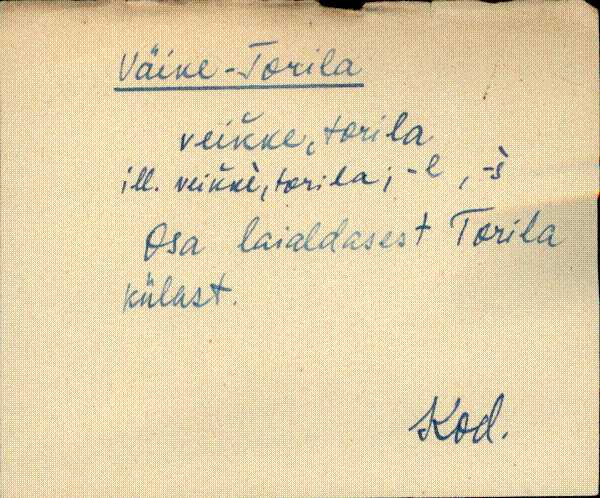 Väike-Torila
veik̆ke, torila
ill. veik̆kè, torila; -l, -s̀
Osa laialdasest Torila
külast.
Kod.